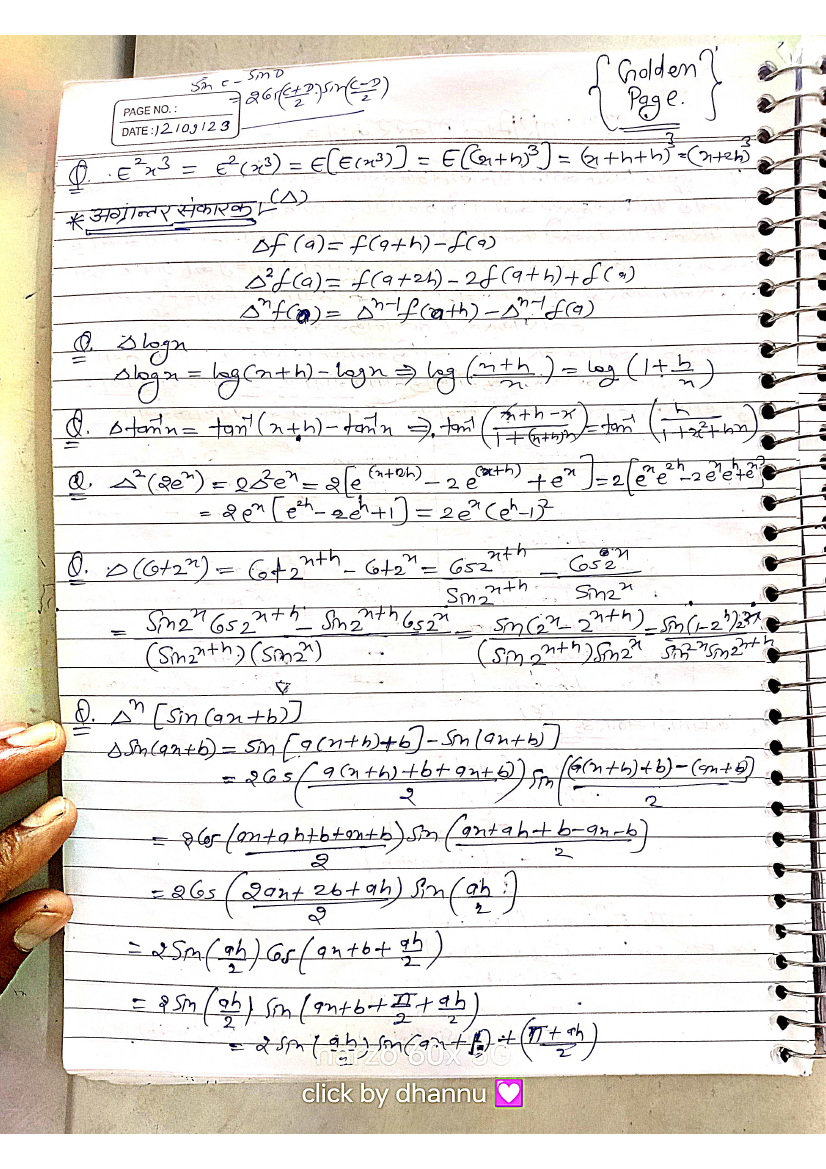 Sin C - Sin D
= 2Cos(C+D/2) Sin(C-D/2)
{Golden Page.}
PAGE NO.:
DATE: 12/09/23
Q. E²x³ = E²(x³) = E[E(x³)] = E[(x+h)³] = (x+h+h)³ = (x+2h)³
* अग्रान्तर संकारक (Δ)
Δf(a) = f(a+h) - f(a)
Δ²f(a) = f(a+2h) - 2f(a+h) + f(a)
Δⁿf(a) = Δⁿ⁻¹f(a+h) - Δⁿ⁻¹f(a)
Q. Δlogx
Δlogx = log(x+h) - logx ⇒ log(x+h/x) = log(1+h/x)
Q. Δtan⁻¹x = tan⁻¹(x+h) - tan⁻¹x ⇒ tan⁻¹(x+h-x/1+(x+h)x) = tan⁻¹(h/1+x²+hx)
Q. Δ²(2eˣ) = 2Δ²eˣ = 2[e^(x+2h) - 2e^(x+h) + eˣ] = 2[eˣe²ʰ - 2eˣeʰ + eˣ]
= 2eˣ[e²ʰ - 2eʰ + 1] = 2eˣ(eʰ-1)²
Q. Δ(Cot2ˣ) = Cot2ˣ⁺ʰ - Cot2ˣ = Cos2ˣ⁺ʰ/Sin2ˣ⁺ʰ - Cos2ˣ/Sin2ˣ
= Sin2ˣ Cos2ˣ⁺ʰ - Sin2ˣ⁺ʰ Cos2ˣ/(Sin2ˣ⁺ʰ)(Sin2ˣ) = Sin(2ˣ - 2ˣ⁺ʰ)/(Sin2ˣ⁺ʰ)Sin2ˣ = Sin(1-2ʰ)2ˣ/Sin2ˣ Sin2ˣ⁺ʰ
Q. Δⁿ[Sin(ax+b)]
ΔSin(ax+b) = Sin[a(x+h)+b] - Sin(ax+b)]
= 2Cos(a(x+h)+b+ax+b)/2) Sin((a(x+h)+b)-(ax+b)/2)
= 2Cos(ax+ah+b+ax+b/2) Sin(ax+ah+b-ax-b/2)
= 2Cos(2ax+2b+ah/2) Sin(ah/2)
= 2Sin(ah/2) Cos(ax+b+ah/2)
= 2Sin(ah/2) Sin(ax+b+π/2+ah/2)
= 2Sin(ah/2) Sin(ax+b)+(π+ah/2)
narzo 60x 5G
click by dhannu